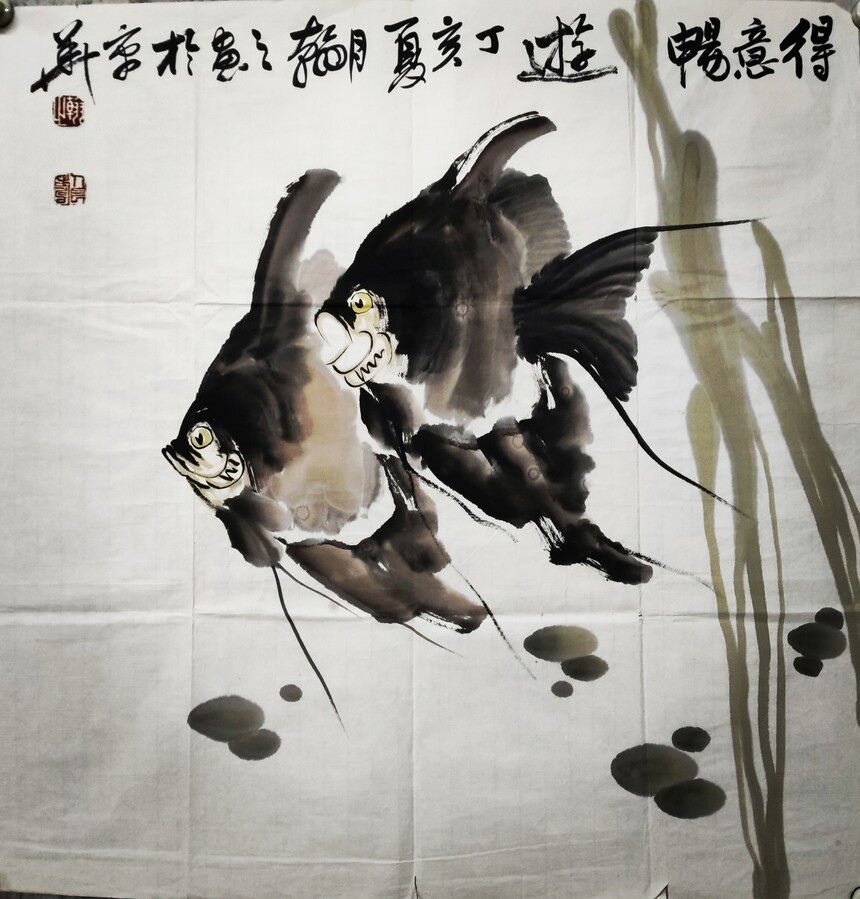 得意暢遊丁亥夏月翰之畫於京華